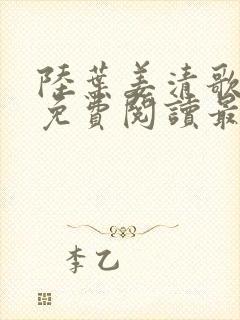 陸葉姜清歌
免費閱讀最
李乙